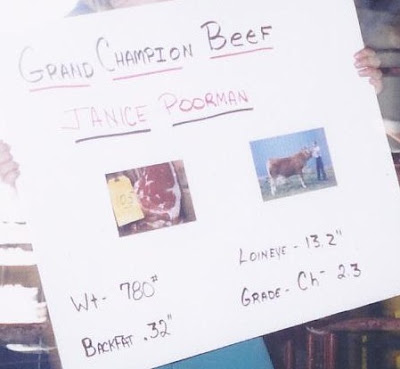 GRAND CHAMPION BEEF
JANICE POORMAN
105
WT- 780#
BACKFAT .32"
LOINEYE - 13.2"
GRADE - Ch- 2.3